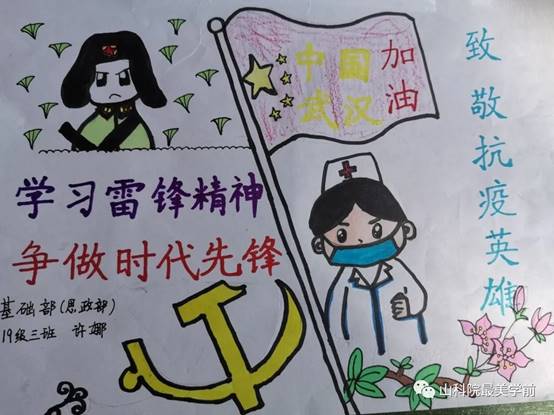 中国
武汉
加油
致敬抗疫英雄
学习雷锋精神
争做时代先锋
基础部(思政部)
19级三班 许娜
山科院最美学前